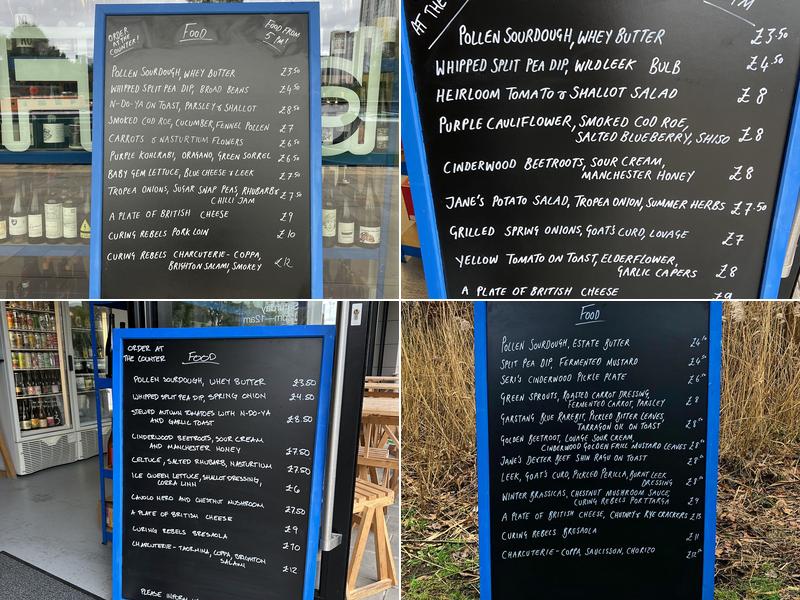 ORDER
AT THE
COUNTER!
FOOD
FOOD FROM
5 PM!
POLLEN SOURDOUGH, WHEY BUTTER £3.50
WHIPPED SPLIT PEA DIP, BROAD BEANS £4.50
N-DO-YA ON TOAST, PARSLEY & SHALLOT £8.50
SMOKED COD ROE, CUCUMBER, FENNEL POLLEN £7
CARROTS & NASTURTIUM FLOWERS £6.50
PURPLE KOHLRABI, ORAGANO, GREEN SORREL £6.50
BABY GEM LETTUCE, BLUE CHEESE & LEEK £7.50
TROPEA ONIONS, SUGAR SNAP PEAS, RHUBARB &
CHILLI JAM £7.50
A PLATE OF BRITISH CHEESE £9
CURING REBELS PORK LOIN £10
CURING REBELS CHARCUTERIE - COPPA,
BRIGHTON SALAMI, SMOKEY £12
AT THE
PM
POLLEN SOURDOUGH, WHEY BUTTER £3.50
WHIPPED SPLIT PEA DIP, WILD LEEK BULB £4.50
HEIRLOOM TOMATO & SHALLOT SALAD £8
PURPLE CAULIFLOWER, SMOKED COD ROE,
SALTED BLUEBERRY, SHISO £8
CINDERWOOD BEETROOTS, SOUR CREAM,
MANCHESTER HONEY £8
JANE'S POTATO SALAD, TROPEA ONION, SUMMER HERBS £7.50
GRILLED SPRING ONIONS, GOAT'S CURD, LOVAGE £7
YELLOW TOMATO ON TOAST, ELDERFLOWER,
GARLIC CAPERS £8
A PLATE OF BRITISH CHEESE £9
ORDER AT
THE COUNTER
FOOD
POLLEN SOURDOUGH, WHEY BUTTER £3.50
WHIPPED SPLIT PEA DIP, SPRING ONION £4.50
STEWED AUTUMN TOMATOES WITH N-DO-YA
AND GARLIC TOAST £8.50
CINDERWOOD BEETROOTS, SOUR CREAM
AND MANCHESTER HONEY £7.50
CELTUCE, SALTED RHUBARB, NASTURTIUM £7.50
ICE QUEEN LETTUCE, SHALLOT DRESSING,
CORRA LINN £6
CAVOLO NERO AND CHESTNUT MUSHROOM £7.50
A PLATE OF BRITISH CHEESE £9
CURING REBELS BRESAOLA £10
CHARCUTERIE - TAORMINA, COPPA, BRIGHTON
SALAMI £12
PLEASE INFORM
FOOD
POLLEN SOURDOUGH, ESTATE BUTTER £4
SPLIT PEA DIP, FERMENTED MUSTARD £4.50
SERI'S CINDERWOOD PICKLE PLATE £6
GREEN SPROUTS, ROASTED CARROT DRESSING,
FERMENTED CARROT, PARSLEY £8
GARSTANG BLUE RAREBIT, PICKLED BITTER LEAVES,
TARRAGON OIL ON TOAST £8
GOLDEN BEETROOT, LOVAGE SOUR CREAM,
CINDERWOOD GOLDEN FRILL MUSTARD LEAVES £8
JANE'S DEXTER BEEF SHIN RAGU ON TOAST £8
LEEK, GOAT'S CURD, PICKLED PERILLA, BURNT LEEK
DRESSING £8
WINTER BRASSICAS, CHESTNUT MUSHROOM SAUCE,
CURING REBELS PORTTARGA £9
A PLATE OF BRITISH CHEESE, CHUTNEY & RYE CRACKERS £13
CURING REBELS BRESAOLA £11
CHARCUTERIE - COPPA, SAUCISSON, CHORIZO £12